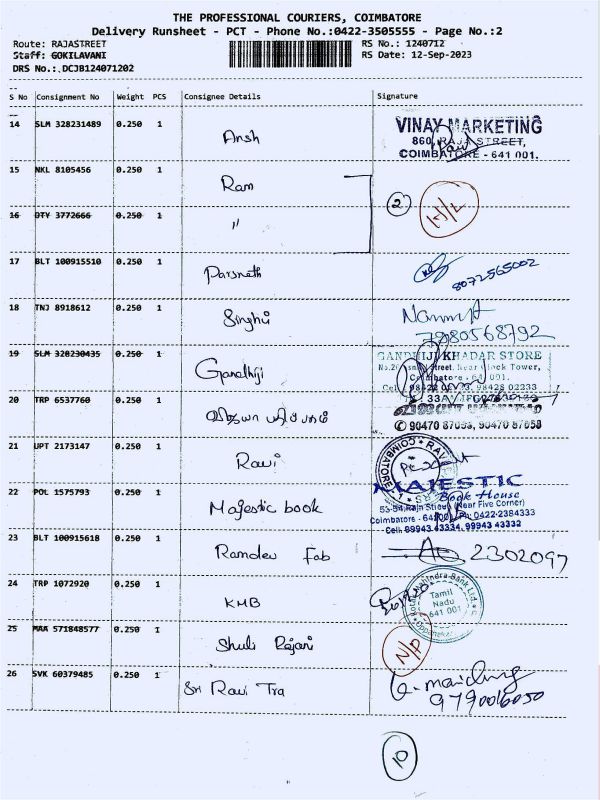 THE PROFESSIONAL COURIERS, COIMBATORE
Delivery Runsheet - PCT - Phone No.:0422-3505555 - Page No.:2
Route: RAJASTREET
RS No.: 1240712
Staff: GOKILAVANI
RS Date: 12-Sep-2023
DRS No.: DCJB124071202
S No Consignment No Weight PCS Consignee Details Signature
14 SLM 328231489 0.250 1 Ansh
VINAY MARKETING
860, RAJA STREET,
COIMBATORE - 641 001.
15 NKL 8105456 0.250 1 Ram
2
16 DTY 3772666 0.250 1 "
17 BLT 100915510 0.250 1 Parsnath 8072565002
18 TNJ 8918612 0.250 1 Singhvi
7980568792
19 SLM 328230435 0.250 1 Gandhiji
GANDHIJI KHADAR STORE
Street, Near Clock Tower,
Coimbatore - 641 001.
20 TRP 6537760 0.250 1
90470 87053, 90470 87058
21 UPT 2173147 0.250 1 Ravi
COIMBATORE
22 POL 1575793 0.250 1 Majestic book
MAJESTIC
Book House
53-54, Raja Street (Near Five Corner)
Coimbatore - 641001, Ph: 0422-2384333
Cell: 99943 43334, 99943 43332
23 BLT 100915618 0.250 1 Ramdev Fab 2302097
24 TRP 1072920 0.250 1 KMB
Mahindra Bank Ltd.
Tamil
Nadu
641 001
25 MAA 571848577 0.250 1 Shuli Rajari N/P
26 SVK 60379485 0.250 1 Sri Ravi Tra
9790016050
10